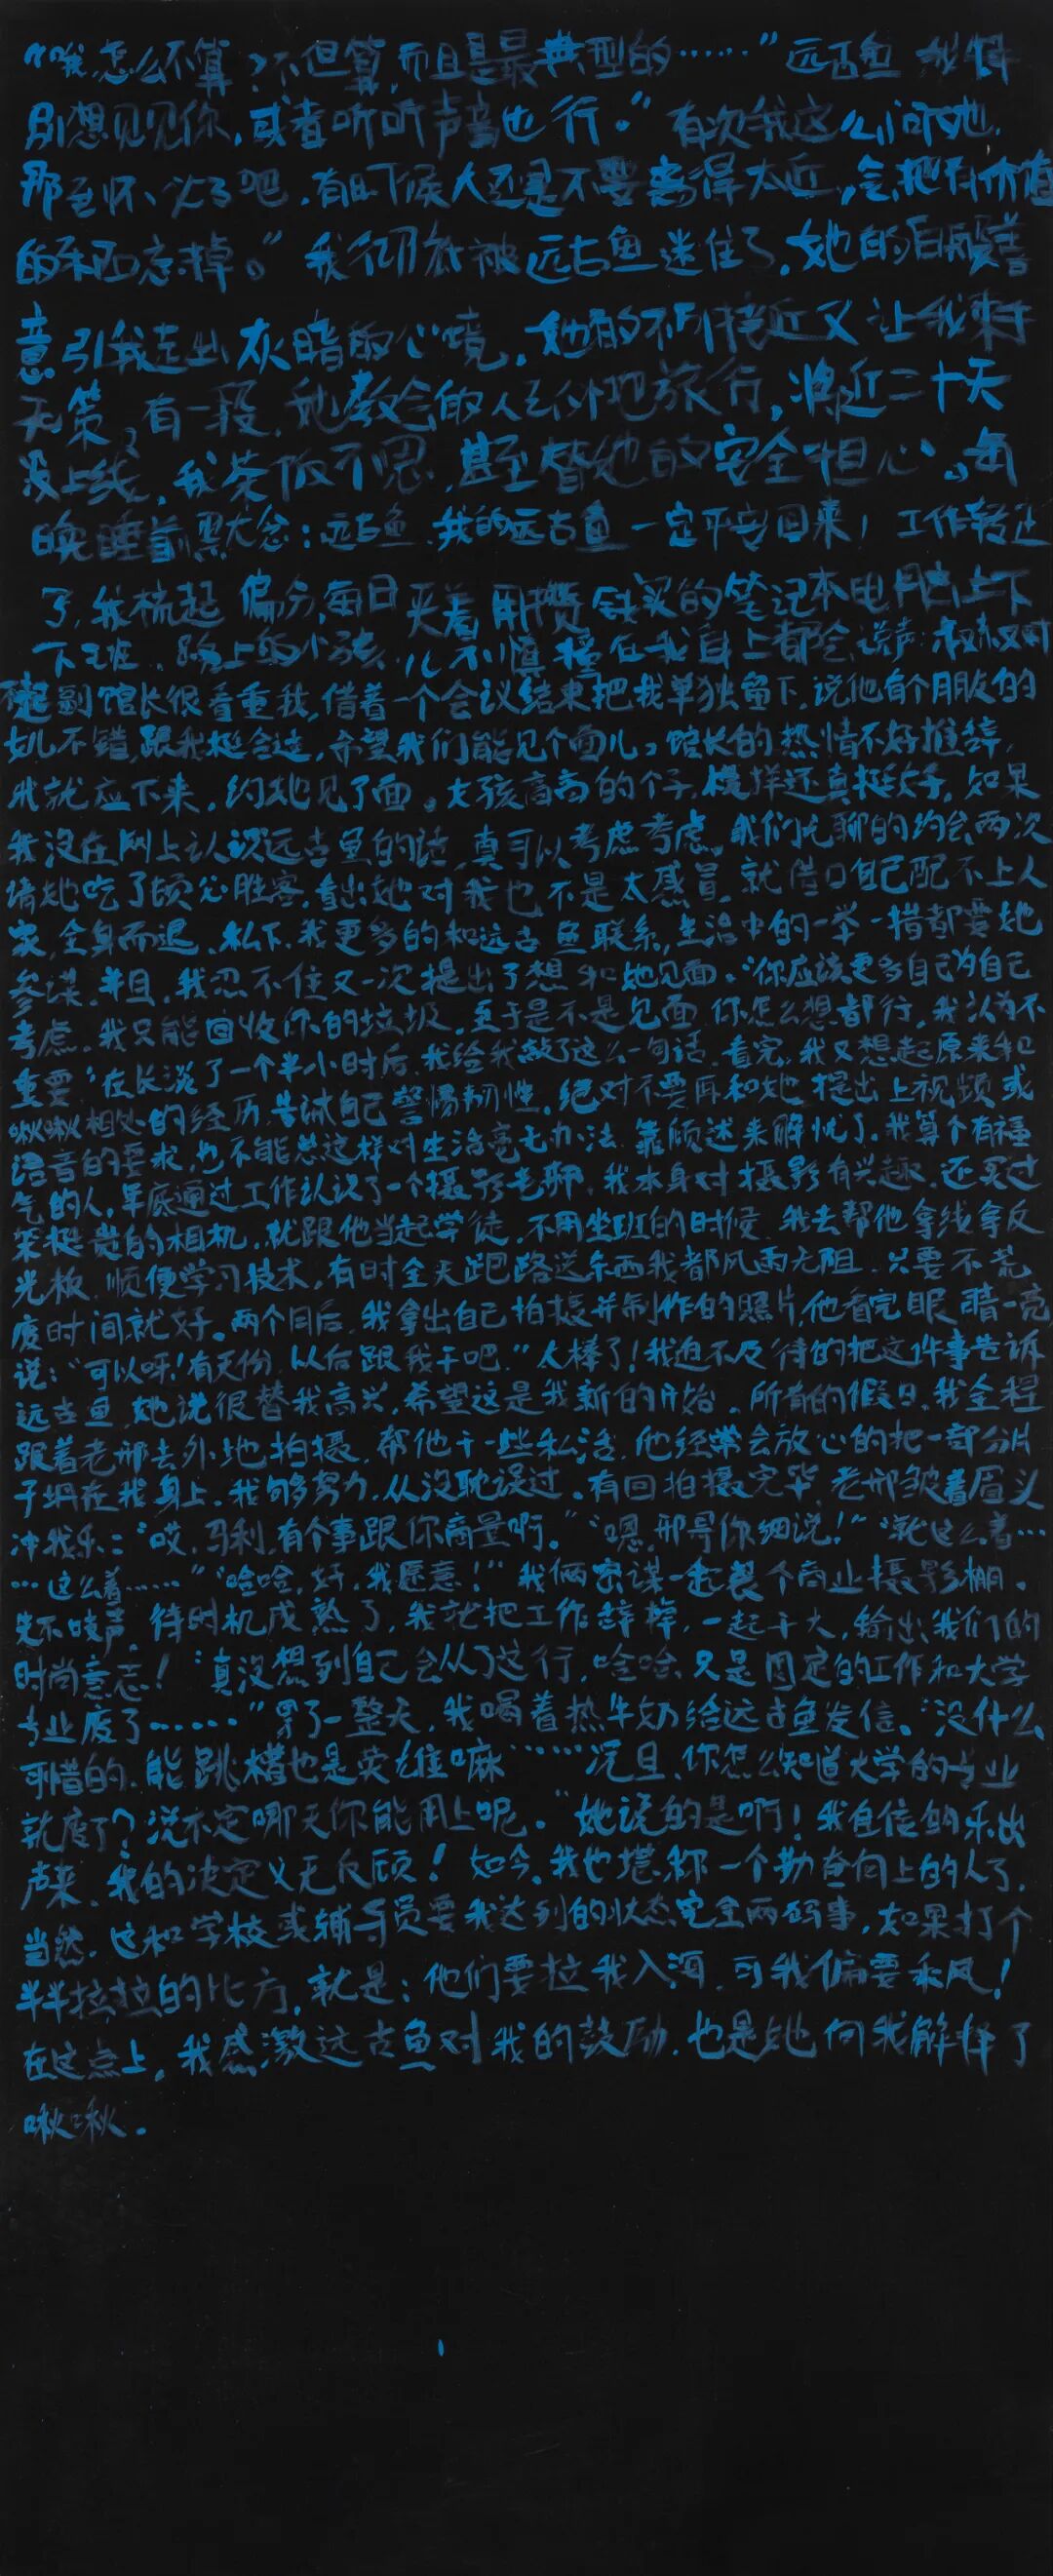 “哦,怎么不算?不但算,而且是最典型的……”远古鱼 我特
别想见见你,或者听听声音也行。”有次我这么问她.
那还怀、次了吧.有时候人还是不要离得太近,会把有价值
的东西忘掉。”我彻底被远古鱼迷住了.她的自由善
意引我走出灰暗的心境,她的不可接近又让我束手
无策,有一段,她教会的人去外地旅行,将近二十天
没上线,我茶饭不思,甚至替她的安全担心。每
晚睡前默念:远古鱼.我的远古鱼一定平安回来!工作转正
了,我梳起偏分,每日夹着用攒钱买的笔记本电脑上下
下班.路上的小孩儿不慎撞在我身上都会说声:叔叔对
不起 副馆长很看重我,借着一个会议结束把我单独留下,说他有个朋友的
女儿不错,跟我挺合适,希望我们能见个面儿,馆长的热情不好推辞,
我就应下来,约她见了面。女孩高高的个子,模样还真挺好,如果
我没在网上认识远古鱼的话,真可以考虑考虑。我们无聊的约会两次
请她吃了顿必胜客,看出她对我也不是太感冒,就借口自己配不上人
家,全身而退、私下,我更多的和远古鱼联系,生活中的一举一措都要她
参谋.并且,我忍不住又一次提出了想和她见面.“你应该更多自己为自己
考虑.我只能回收你的垃圾.至于是不是见面你怎么想都行.我认为不
重要”在长谈了一个半小时后.我给我敲了这么一句话.看完,我又想起原来和
啾啾相处的经历,告诫自己警惕韧性,绝对不要再和她提出上视频或
语音的要求,也不能总这样对生活毫无办法.靠倾述来解忧了.我算个有福
气的人,年底通过工作认识了一个摄影老邢,我本身对摄影有兴趣.还买过
笨挺贵的相机,就跟他当起学徒,不用坐班的时候.我去帮他拿线拿反
光板.顺便学习技术,有时全天跑路送东西我都风雨无阻.只要不荒
废时间就好。两个月后,我拿出自己拍摄并制作的照片,他看完眼睛一亮
说:“可以呀!有天份.以后跟我干吧.”太棒了!我迫不及待的把这件事告诉
远古鱼,她说很替我高兴,希望这是我新的开始.所有的假日,我全程
跟着老邢去外地拍摄,帮他干一些私活,他经常会放心的把一部分片
子坍在我身上.我够努力,从没耽误过.有回拍摄完毕,老邢皱着眉头
冲我乐:“哎,马利,有个事跟你商量啊。”“嗯,邢哥你细说!”“就这么着…
…这么着……”“哈哈,好,我愿意!”我俩密谋一起裂个商业摄影棚.
先不吱声.待时机成熟了,我就把工作辞掉,一起干大,输出我们的
时尚意志!“真没想到自己会从了这行,哈哈、只是固定的工作和大学
专业废了……”累了一整天,我喝着热牛奶给远古鱼发信、“没什么
可惜的.能跳槽也是英雄嘛……况且,你怎么知道大学的专业
就废了?说不定哪天你能用上呢.”她说的是啊!我自信的乐出
声来.我的决定义无反顾!如今,我也堪称一个勤奋向上的人了.
当然.这和学校或辅导员要我达到的状态完全两码事,如果打个
半半拉拉的比方,就是:他们要拉我入海.可我偏要乘风!
在这点上,我感激远古鱼对我的鼓励.也是她向我解释了
啾啾.